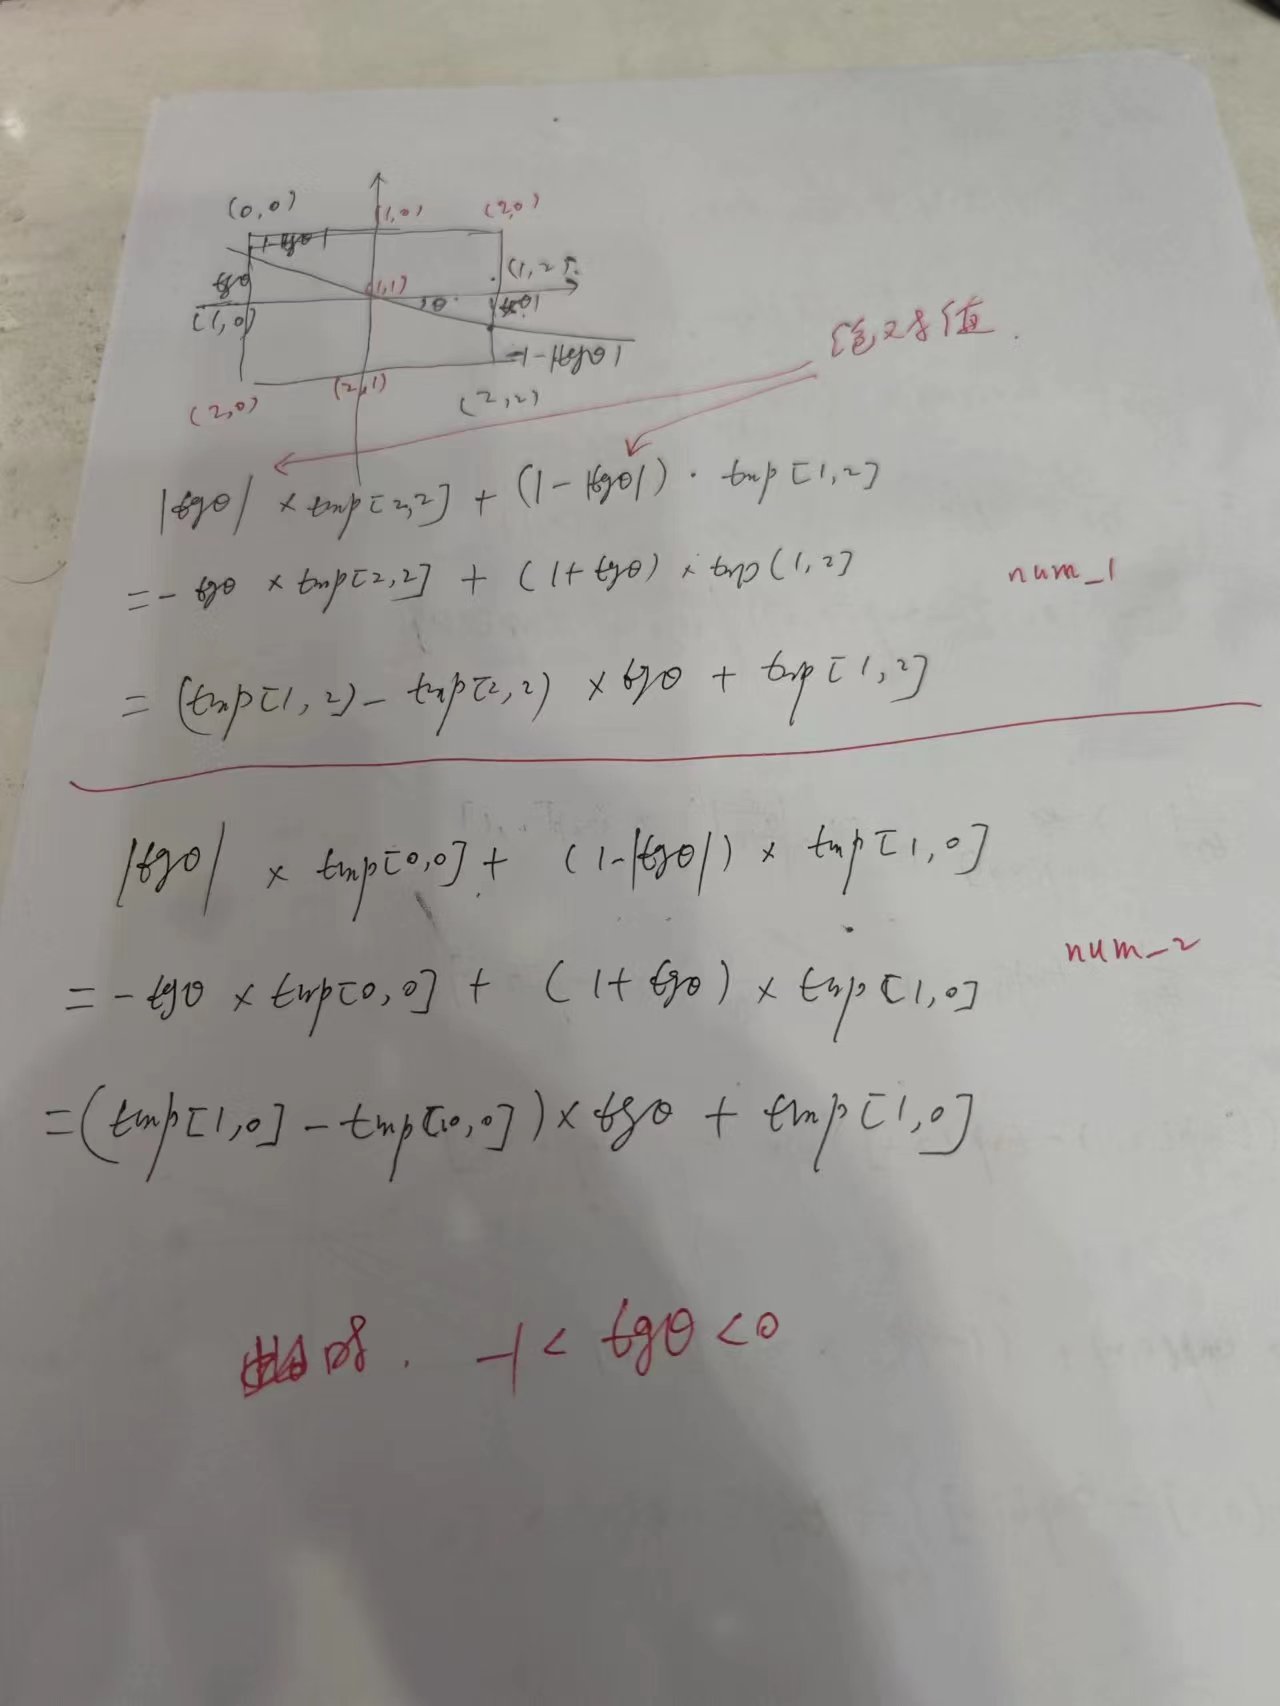 (0,0) (1,0) (2,0)
1-|tgθ|
tgθ (1,1) θ (1,2)
(1,0) |tgθ|
1-|tgθ|
(2,0) (2,1) (2,2)
绝对值.
|tgθ| × tmp[2,2] + (1-|tgθ|) · tmp[1,2]
=- tgθ × tmp[2,2] + (1+tgθ) × tmp(1,2]
num_1
= (tmp[1,2) - tmp[2,2) × tgθ + tmp[1,2]
|tgθ| × tmp[0,0] + (1-|tgθ|) × tmp[1,0]
= - tgθ × tmp[0,0] + (1+tgθ) × tmp[1,0]
num_2
=(tmp[1,0] - tmp[0,0])× tgθ + tmp[1,0]
-1 < tgθ < 0